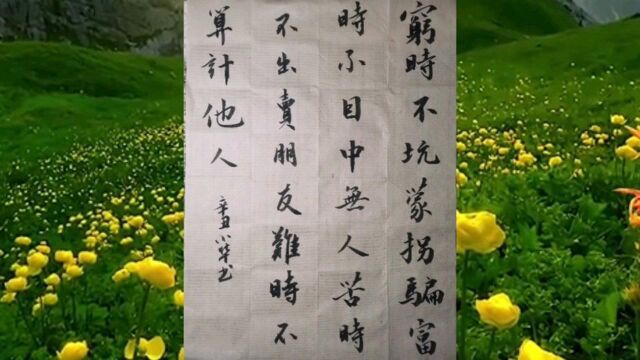 窮時不坑蒙拐騙富
時不目中無人苦時
不出賣朋友難時不
算計他人
辛丑小华书